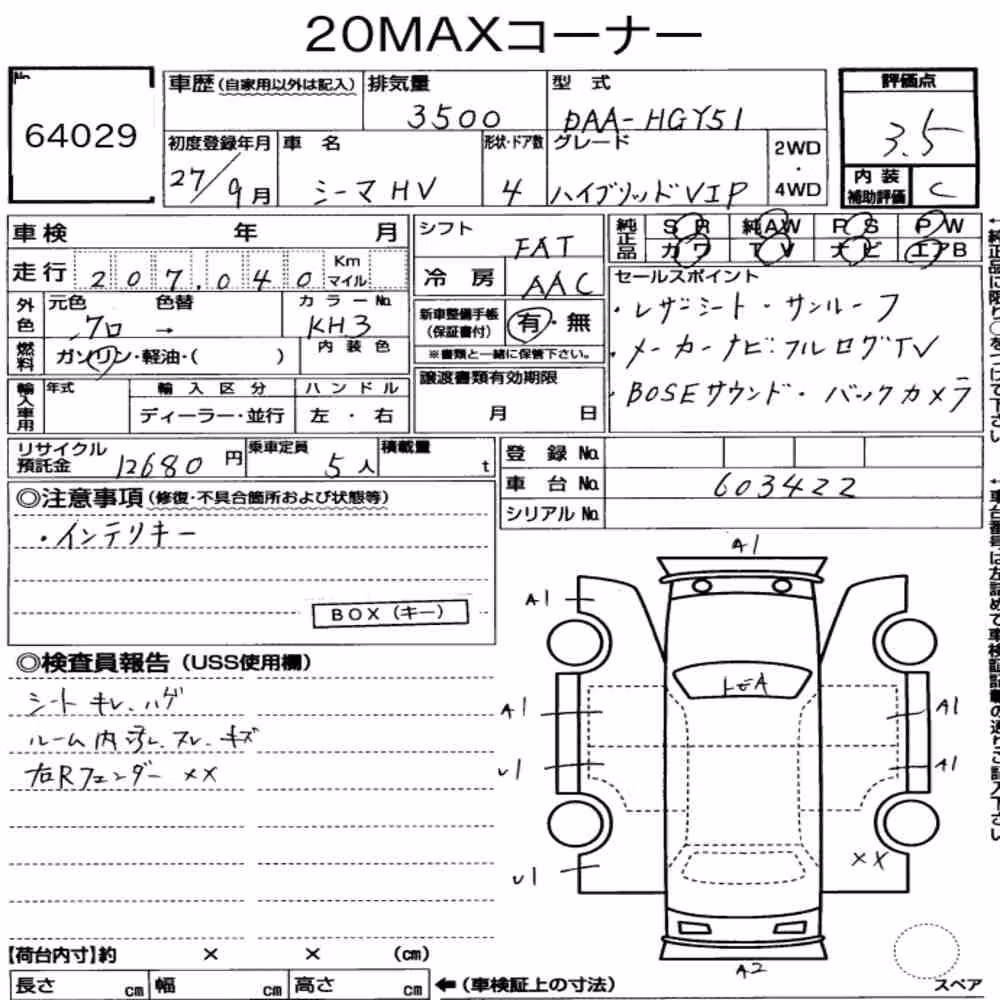 20MAXコーナー
No.
64029
車歴(自家用以外は記入) 排気量 3500 型式 DAA-HGY51
評価点 3.5
初度登録年月 27/9月 車名 シーマHV 形状・ドア数 4 グレード ハイブリッドVIP 2WD・4WD
内装補助評価 C
車検 年 月
シフト FAT
純正品 SR 純AW PS PW
カワ TV ナビ エアB
走行 207,040 Km マイル
冷房 AAC
セールスポイント
・レザーシート・サンルーフ
・メーカーナビ・フルセグTV
・BOSEサウンド・バックカメラ
外色 元色 クロ → 色替 カラーNo. KH3
新車整備手帳(保証書付) 有・無
※書類と一緒に保管下さい。
燃料 ガソリン・軽油・( ) 内装色
輸入車用 年式 輸入区分 ディーラー・並行 ハンドル 左・右
譲渡書類有効期限
月 日
リサイクル預託金 12680円 乗車定員 5人 積載量 t
登録No.
車台No. 603422
シリアルNo.
◎注意事項(修復・不具合箇所および状態等)
・インテリキー
BOX(キー)
◎検査員報告(USS使用欄)
シート キレ、ハゲ
ルーム内 汚レ、スレ、キズ
右Rフェンダー ××
A1
A1
A1
A1
A1
U1
U1
××
A2
スペア
【荷台内寸】約 × × (cm)
長さ cm 幅 cm 高さ cm ←(車検証上の寸法)
←純正品に限り○をつけて下さい
←車台番号は左詰めで車検証記載の通りご記入下さい